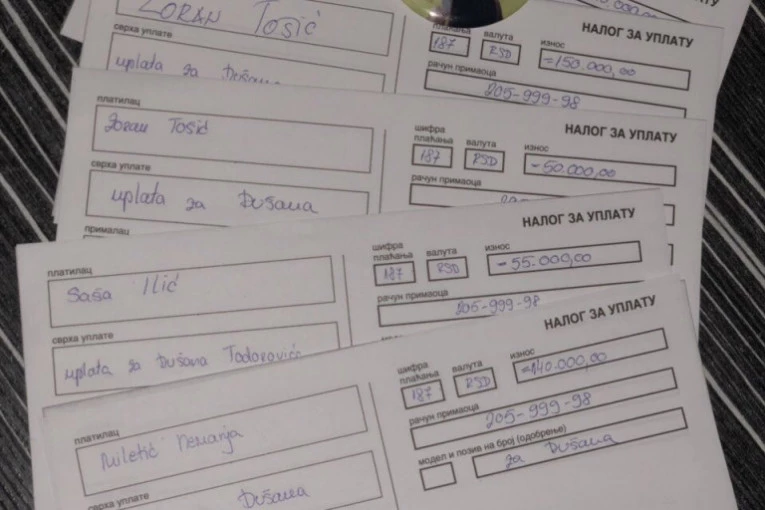 0.000,00
ZORAN Tosić
сврха уплате
uplata za Dušana
шифра плаћања
187
валута
RSD
износ
=150.000,00
рачун примаоца
205-999-98
НАЛОГ ЗА УПЛАТУ
платилац
Zoran Tosić
сврха уплате
uplata za Dušana
прималац
шифра
плаћања
187
валута
RSD
износ
=50.000,00
рачун примаоца
НАЛОГ ЗА УПЛАТУ
платилац
Saša Ilić
сврха уплате
uplata za Dušana Todorovića
шифра
плаћања
187
валута
RSD
износ
=55.000,00
рачун примаоца
205-999-98
НАЛОГ ЗА УПЛАТУ
платилац
Miletić Nemanja
сврха уплате
Dušana
шифра
плаћања
187
валута
RSD
износ
=140.000,00
рачун примаоца
205-999-98
модел и позив на број (одобрење)
za Dušana